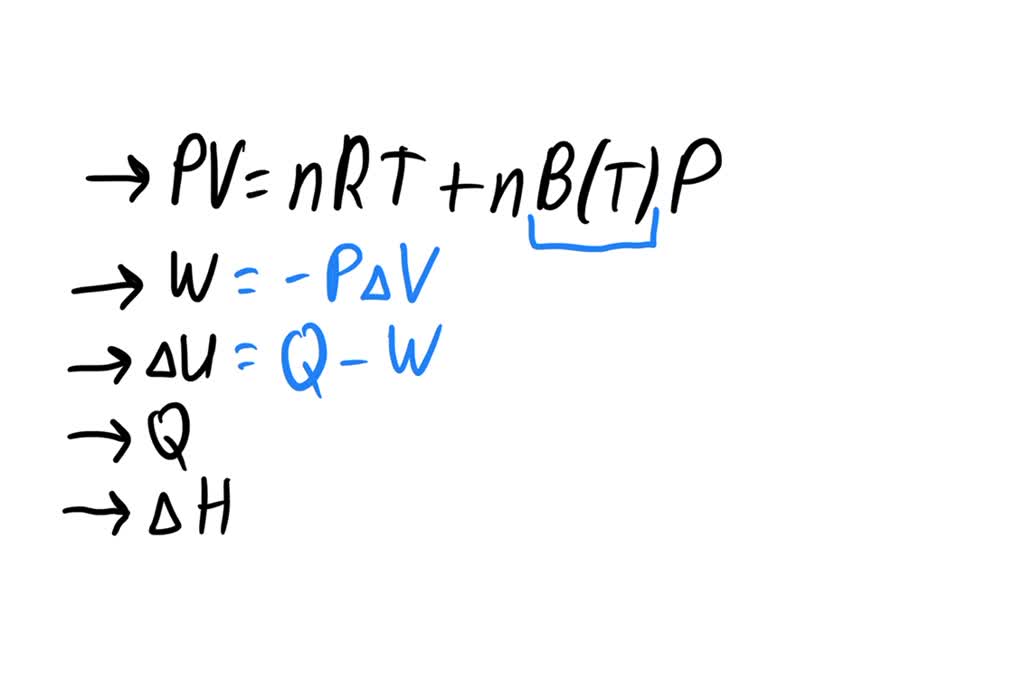 → PV = nRT + nB(T)P
→ W = -PΔV
→ ΔU = Q - W
→ Q
→ ΔH